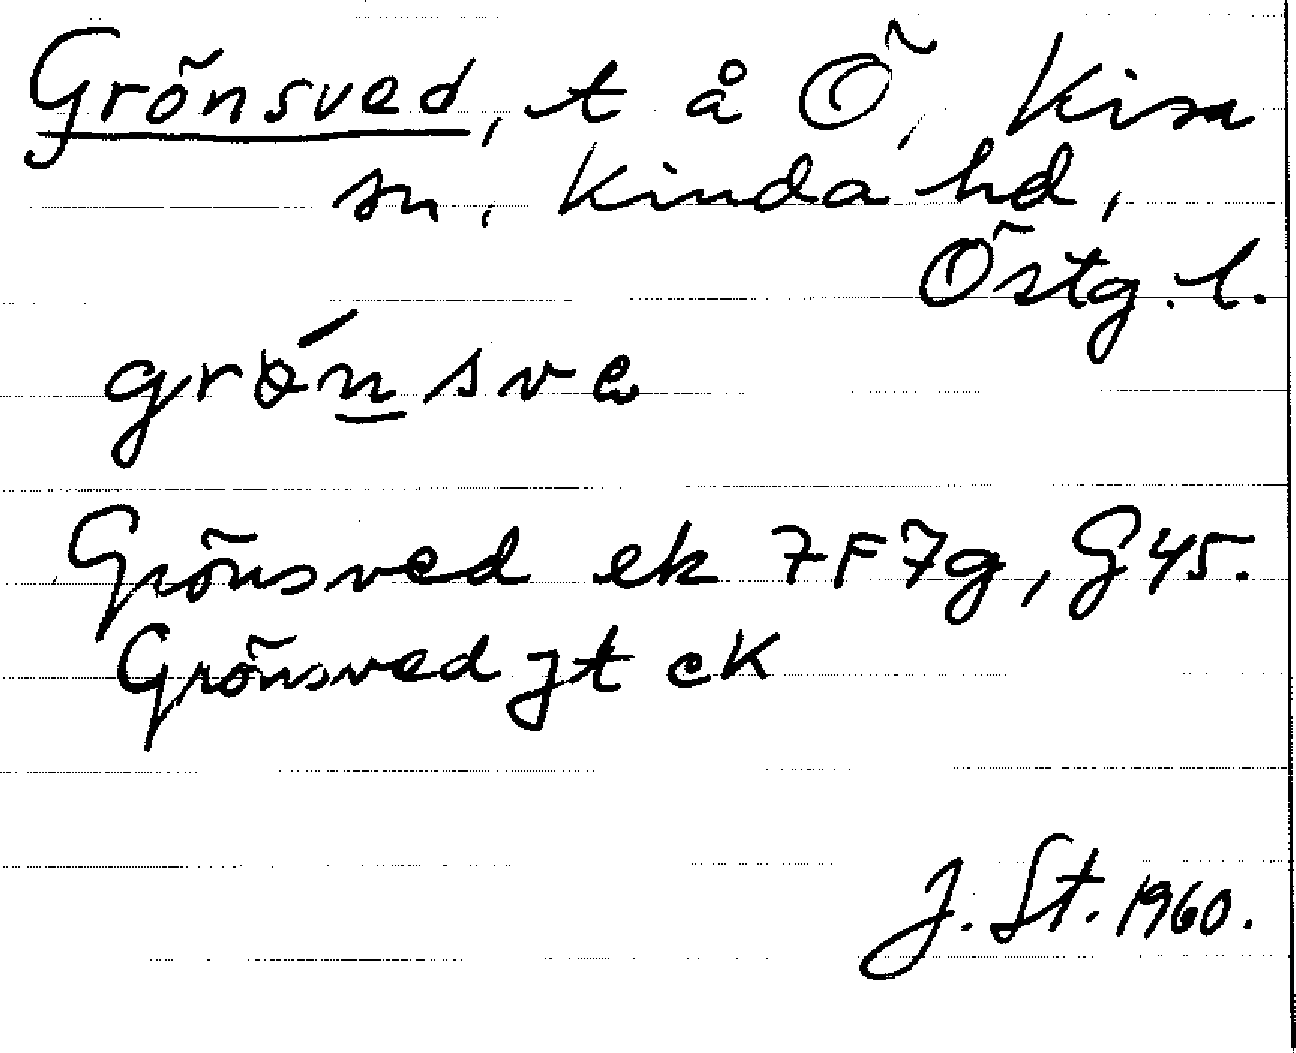 Grönsved, t å Ö, Kisa
sn, Kinda hd,
Östg. l.
grónsve
Grönsved ek 7F7g, G45.
Grönsved jt ek
J. St. 1960.